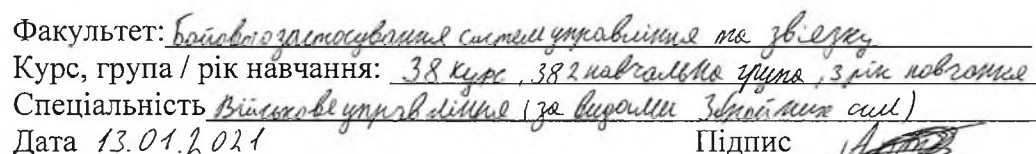 Факультет: Бойового застосування систем управління та зв'язку
Курс, група / рік навчання: 38 курс, 382 навчальна група, 3 рік навчання
Спеціальність Військове управління (за видами Збройних сил)
Дата 13.01.2021 Підпис